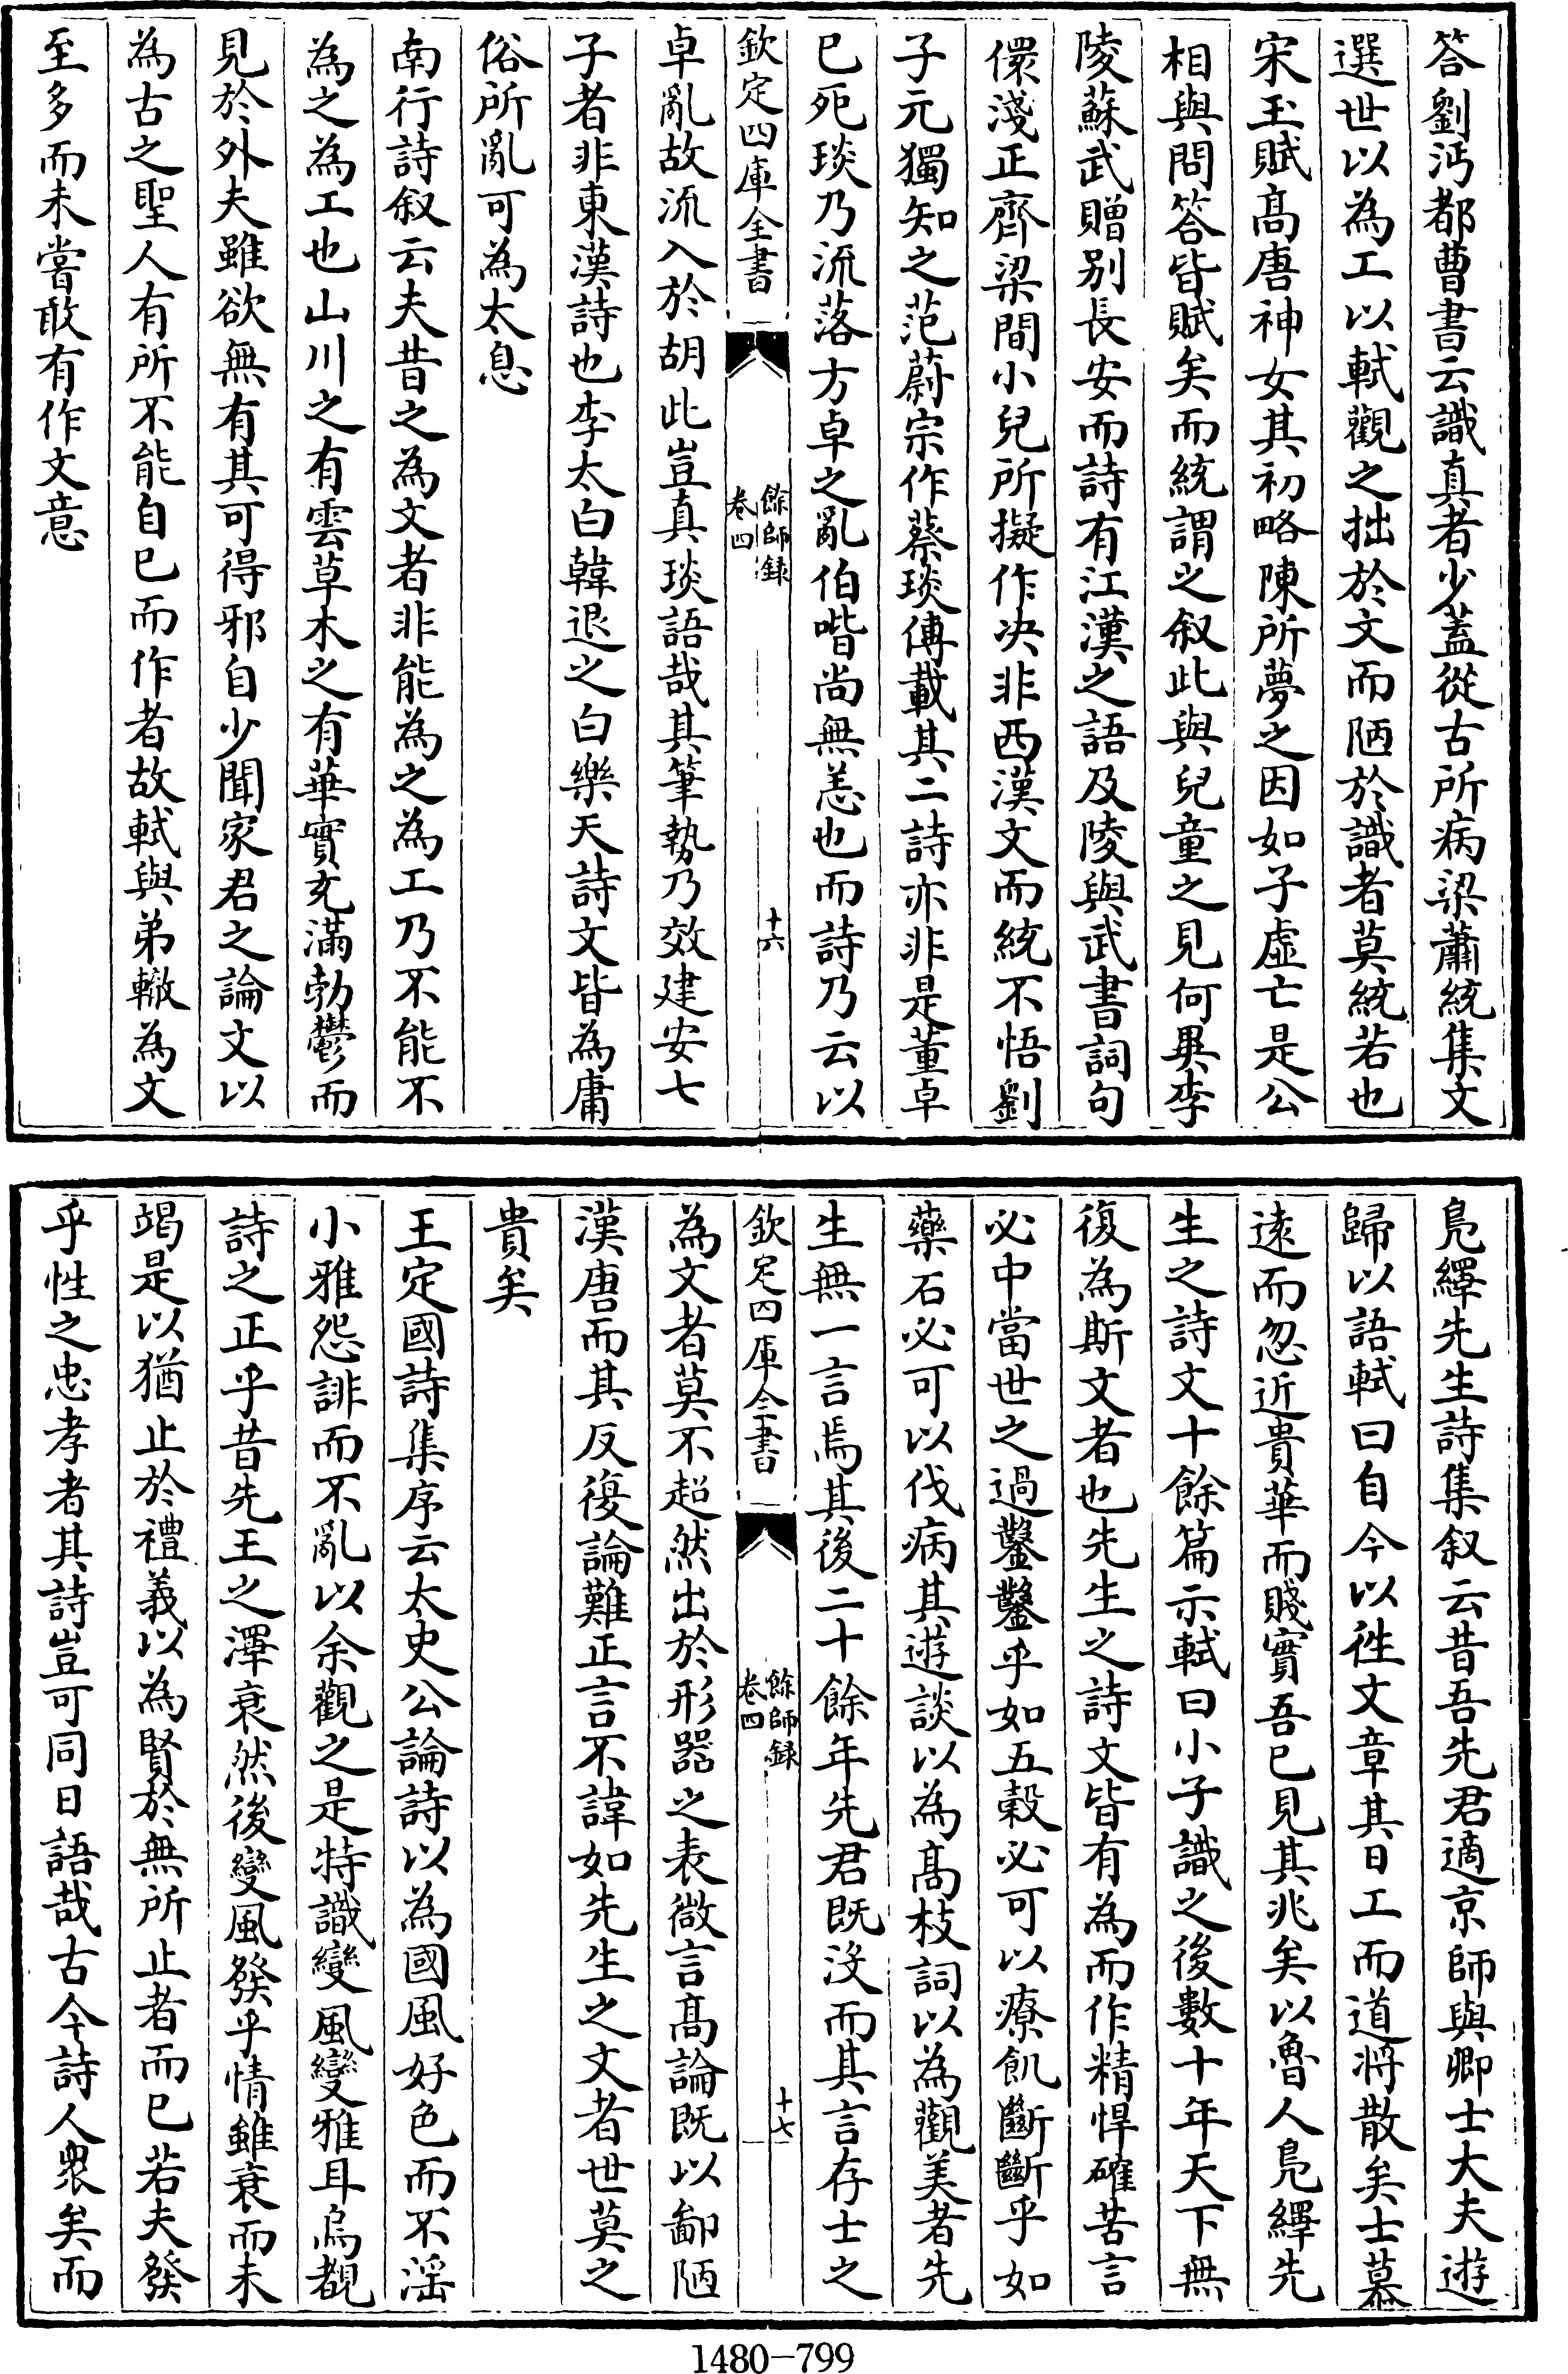 答劉沔都曹書云識真者少蓋從古所病梁蕭統集文
選世以為工以軾觀之拙於文而陋於識者莫統若也
宋玉賦髙唐神女其初略陳所夢之因如子虛亡是公
相與問答皆賦矣而統謂之叙此與兒童之見何異李
陵蘇武贈别長安而詩有江漢之語及陵與武書詞句
儇淺正齊梁間小兒所擬作决非西漢文而統不悟劉
子元獨知之范蔚宗作蔡琰傳載其二詩亦非是董卓
已死琰乃流落方卓之亂伯喈尚無恙也而詩乃云以
欽定四庫全書
餘師録
卷四
十六
卓亂故流入於胡此豈真琰語哉其筆勢乃效建安七
子者非東漢詩也李太白韓退之白樂天詩文皆為庸
俗所亂可為太息
南行詩叙云夫昔之為文者非能為之為工乃不能不
為之為工也山川之有雲草木之有華實充滿勃鬱而
見於外夫雖欲無有其可得邪自少聞家君之論文以
為古之聖人有所不能自已而作者故軾與弟轍為文
至多而未嘗敢有作文意
鳬繹先生詩集叙云昔吾先君適京師與卿士大夫遊
歸以語軾曰自今以徃文章其日工而道將散矣士慕
逺而忽近貴華而賤實吾已見其兆矣以魯人鳬繹先
生之詩文十餘篇示軾曰小子識之後數十年天下無
復為斯文者也先生之詩文皆有為而作精悍確苦言
必中當世之過鑿鑿乎如五穀必可以療飢斷斷乎如
藥石必可以伐病其遊談以為髙枝詞以為觀美者先
生無一言焉其後二十餘年先君既没而其言存士之
欽定四庫全書
餘師録
卷四
十七
為文者莫不超然出於形器之表微言髙論既以鄙陋
漢唐而其反復論難正言不諱如先生之文者世莫之
貴矣
王定國詩集序云太史公論詩以為國風好色而不淫
小雅怨誹而不亂以余觀之是特識變風變雅耳烏覩
詩之正乎昔先王之澤衰然後變風發乎情雖衰而未
竭是以猶止於禮義以為賢於無所止者而已若夫發
乎性之忠孝者其詩豈可同日語哉古今詩人衆矣而
1480-799